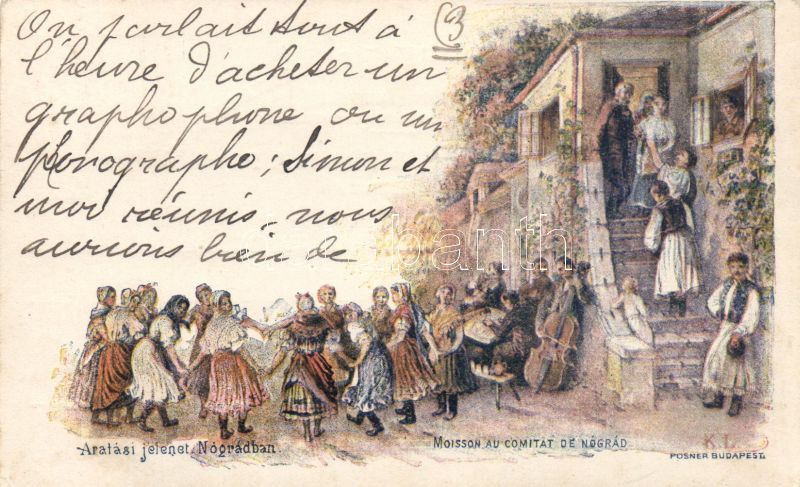 On parlait tout à
l'heure d'acheter un
graphophone ou un
phonographe; Simon et
moi réunis, nous
aurions bien de
(3)
darabanth
Aratási jelenet. Nógrádban.
MOISSON AU COMITAT DE NÓGRÁD
K.L.
POSNER BUDAPEST.